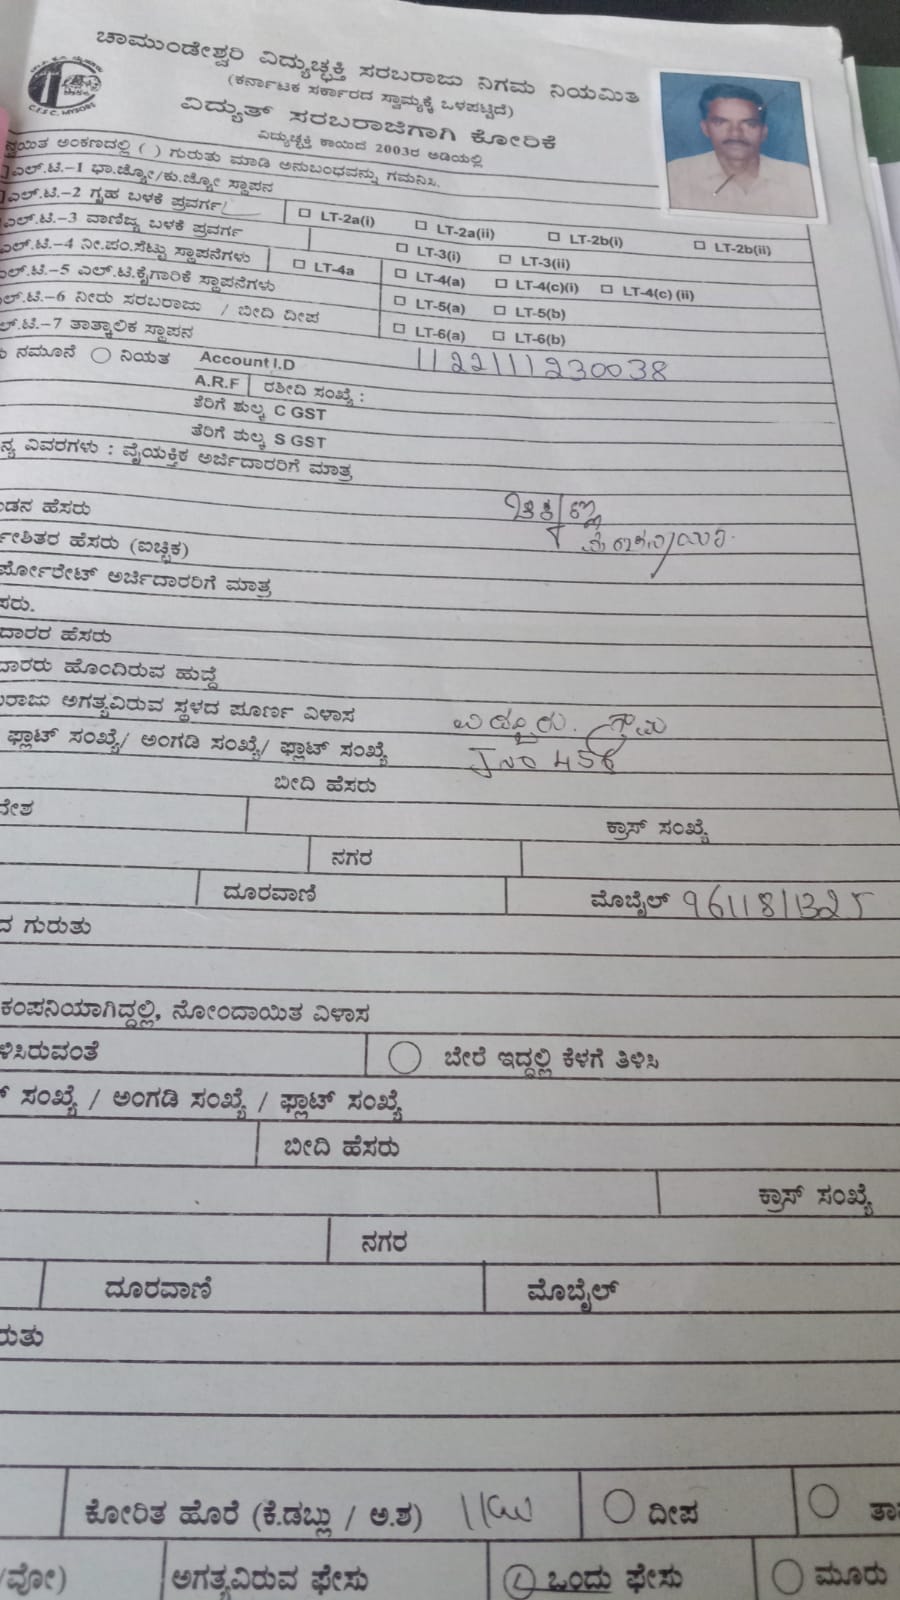 ಚಾಮುಂಡೇಶ್ವರಿ ವಿದ್ಯುಚ್ಛಕ್ತಿ ಸರಬರಾಜು ನಿಗಮ ನಿಯಮಿತ
(ಕರ್ನಾಟಕ ಸರ್ಕಾರದ ಸ್ವಾಮ್ಯಕ್ಕೆ ಒಳಪಟ್ಟಿದೆ)
C.E.S.C. MYSORE
ವಿದ್ಯುತ್ ಸರಬರಾಜಿಗಾಗಿ ಕೋರಿಕೆ
ವಿದ್ಯುಚ್ಛಕ್ತಿ ಕಾಯಿದೆ 2003ರ ಅಡಿಯಲ್ಲಿ
ಅಂಕಣದಲ್ಲಿ ( ) ಗುರುತು ಮಾಡಿ ಅನುಬಂಧವನ್ನು ಗಮನಿಸಿ.
ಎಲ್.ಟಿ.–1 ಭಾ.ಜ್ಯೋ/ಕು.ಜ್ಯೋ ಸ್ಥಾಪನ
ಎಲ್.ಟಿ.–2 ಗೃಹ ಬಳಕೆ ಪ್ರವರ್ಗ LT-2a(i) LT-2a(ii) LT-2b(i) LT-2b(ii)
ಎಲ್.ಟಿ.–3 ವಾಣಿಜ್ಯ ಬಳಕೆ ಪ್ರವರ್ಗ LT-3(i) LT-3(ii)
ಎಲ್.ಟಿ.–4 ನೀ.ಪಂ.ಸೆಟ್ಟು ಸ್ಥಾಪನೆಗಳು LT-4a LT-4(a) LT-4(c)(i) LT-4(c) (ii)
ಎಲ್.ಟಿ.–5 ಎಲ್.ಟಿ.ಕೈಗಾರಿಕೆ ಸ್ಥಾಪನೆಗಳು LT-5(a) LT-5(b)
ಲ್.ಟಿ.–6 ನೀರು ಸರಬರಾಜು / ಬೀದಿ ದೀಪ LT-6(a) LT-6(b)
ಲ್.ಟಿ.–7 ತಾತ್ಕಾಲಿಕ ಸ್ಥಾಪನ
ನಮೂನೆ ನಿಯತ Account I.D 1122111230038
A.R.F ರಶೀದಿ ಸಂಖ್ಯೆ :
ತೆರಿಗೆ ಶುಲ್ಕ C GST
ತೆರಿಗೆ ಶುಲ್ಕ S GST
ನ್ಯ ವಿವರಗಳು : ವೈಯಕ್ತಿಕ ಅರ್ಜಿದಾರರಿಗೆ ಮಾತ್ರ
ಂಡನ ಹೆಸರು
ೇಶಿತರ ಹೆಸರು (ಐಚ್ಛಿಕ)
ರ್ಪೋರೇಟ್ ಅರ್ಜಿದಾರರಿಗೆ ಮಾತ್ರ
ಸರು.
ದಾರರ ಹೆಸರು
ದಾರರು ಹೊಂದಿರುವ ಹುದ್ದೆ
ರಾಜು ಅಗತ್ಯವಿರುವ ಸ್ಥಳದ ಪೂರ್ಣ ವಿಳಾಸ
ಫ್ಲಾಟ್ ಸಂಖ್ಯೆ/ ಅಂಗಡಿ ಸಂಖ್ಯೆ/ ಫ್ಲಾಟ್ ಸಂಖ್ಯೆ
ಬೀದಿ ಹೆಸರು
ದೇಶ ಕ್ರಾಸ್ ಸಂಖ್ಯೆ
ನಗರ
ದೂರವಾಣಿ ಮೊಬೈಲ್ 9611811325
ದ ಗುರುತು
ಕಂಪನಿಯಾಗಿದ್ದಲ್ಲಿ, ನೋಂದಾಯಿತ ವಿಳಾಸ
ಳಿಸಿರುವಂತೆ ಬೇರೆ ಇದ್ದಲ್ಲಿ ಕೆಳಗೆ ತಿಳಿಸಿ
ಸಂಖ್ಯೆ / ಅಂಗಡಿ ಸಂಖ್ಯೆ / ಫ್ಲಾಟ್ ಸಂಖ್ಯೆ
ಬೀದಿ ಹೆಸರು
ಕ್ರಾಸ್ ಸಂಖ್ಯೆ
ನಗರ
ದೂರವಾಣಿ ಮೊಬೈಲ್
ರುತು
ಕೋರಿತ ಹೊರೆ (ಕೆ.ಡಬ್ಲು / ಅ.ಶ) ದೀಪ
/ವೋ) ಅಗತ್ಯವಿರುವ ಫೇಸು ಒಂದು ಫೇಸು ಮೂರು